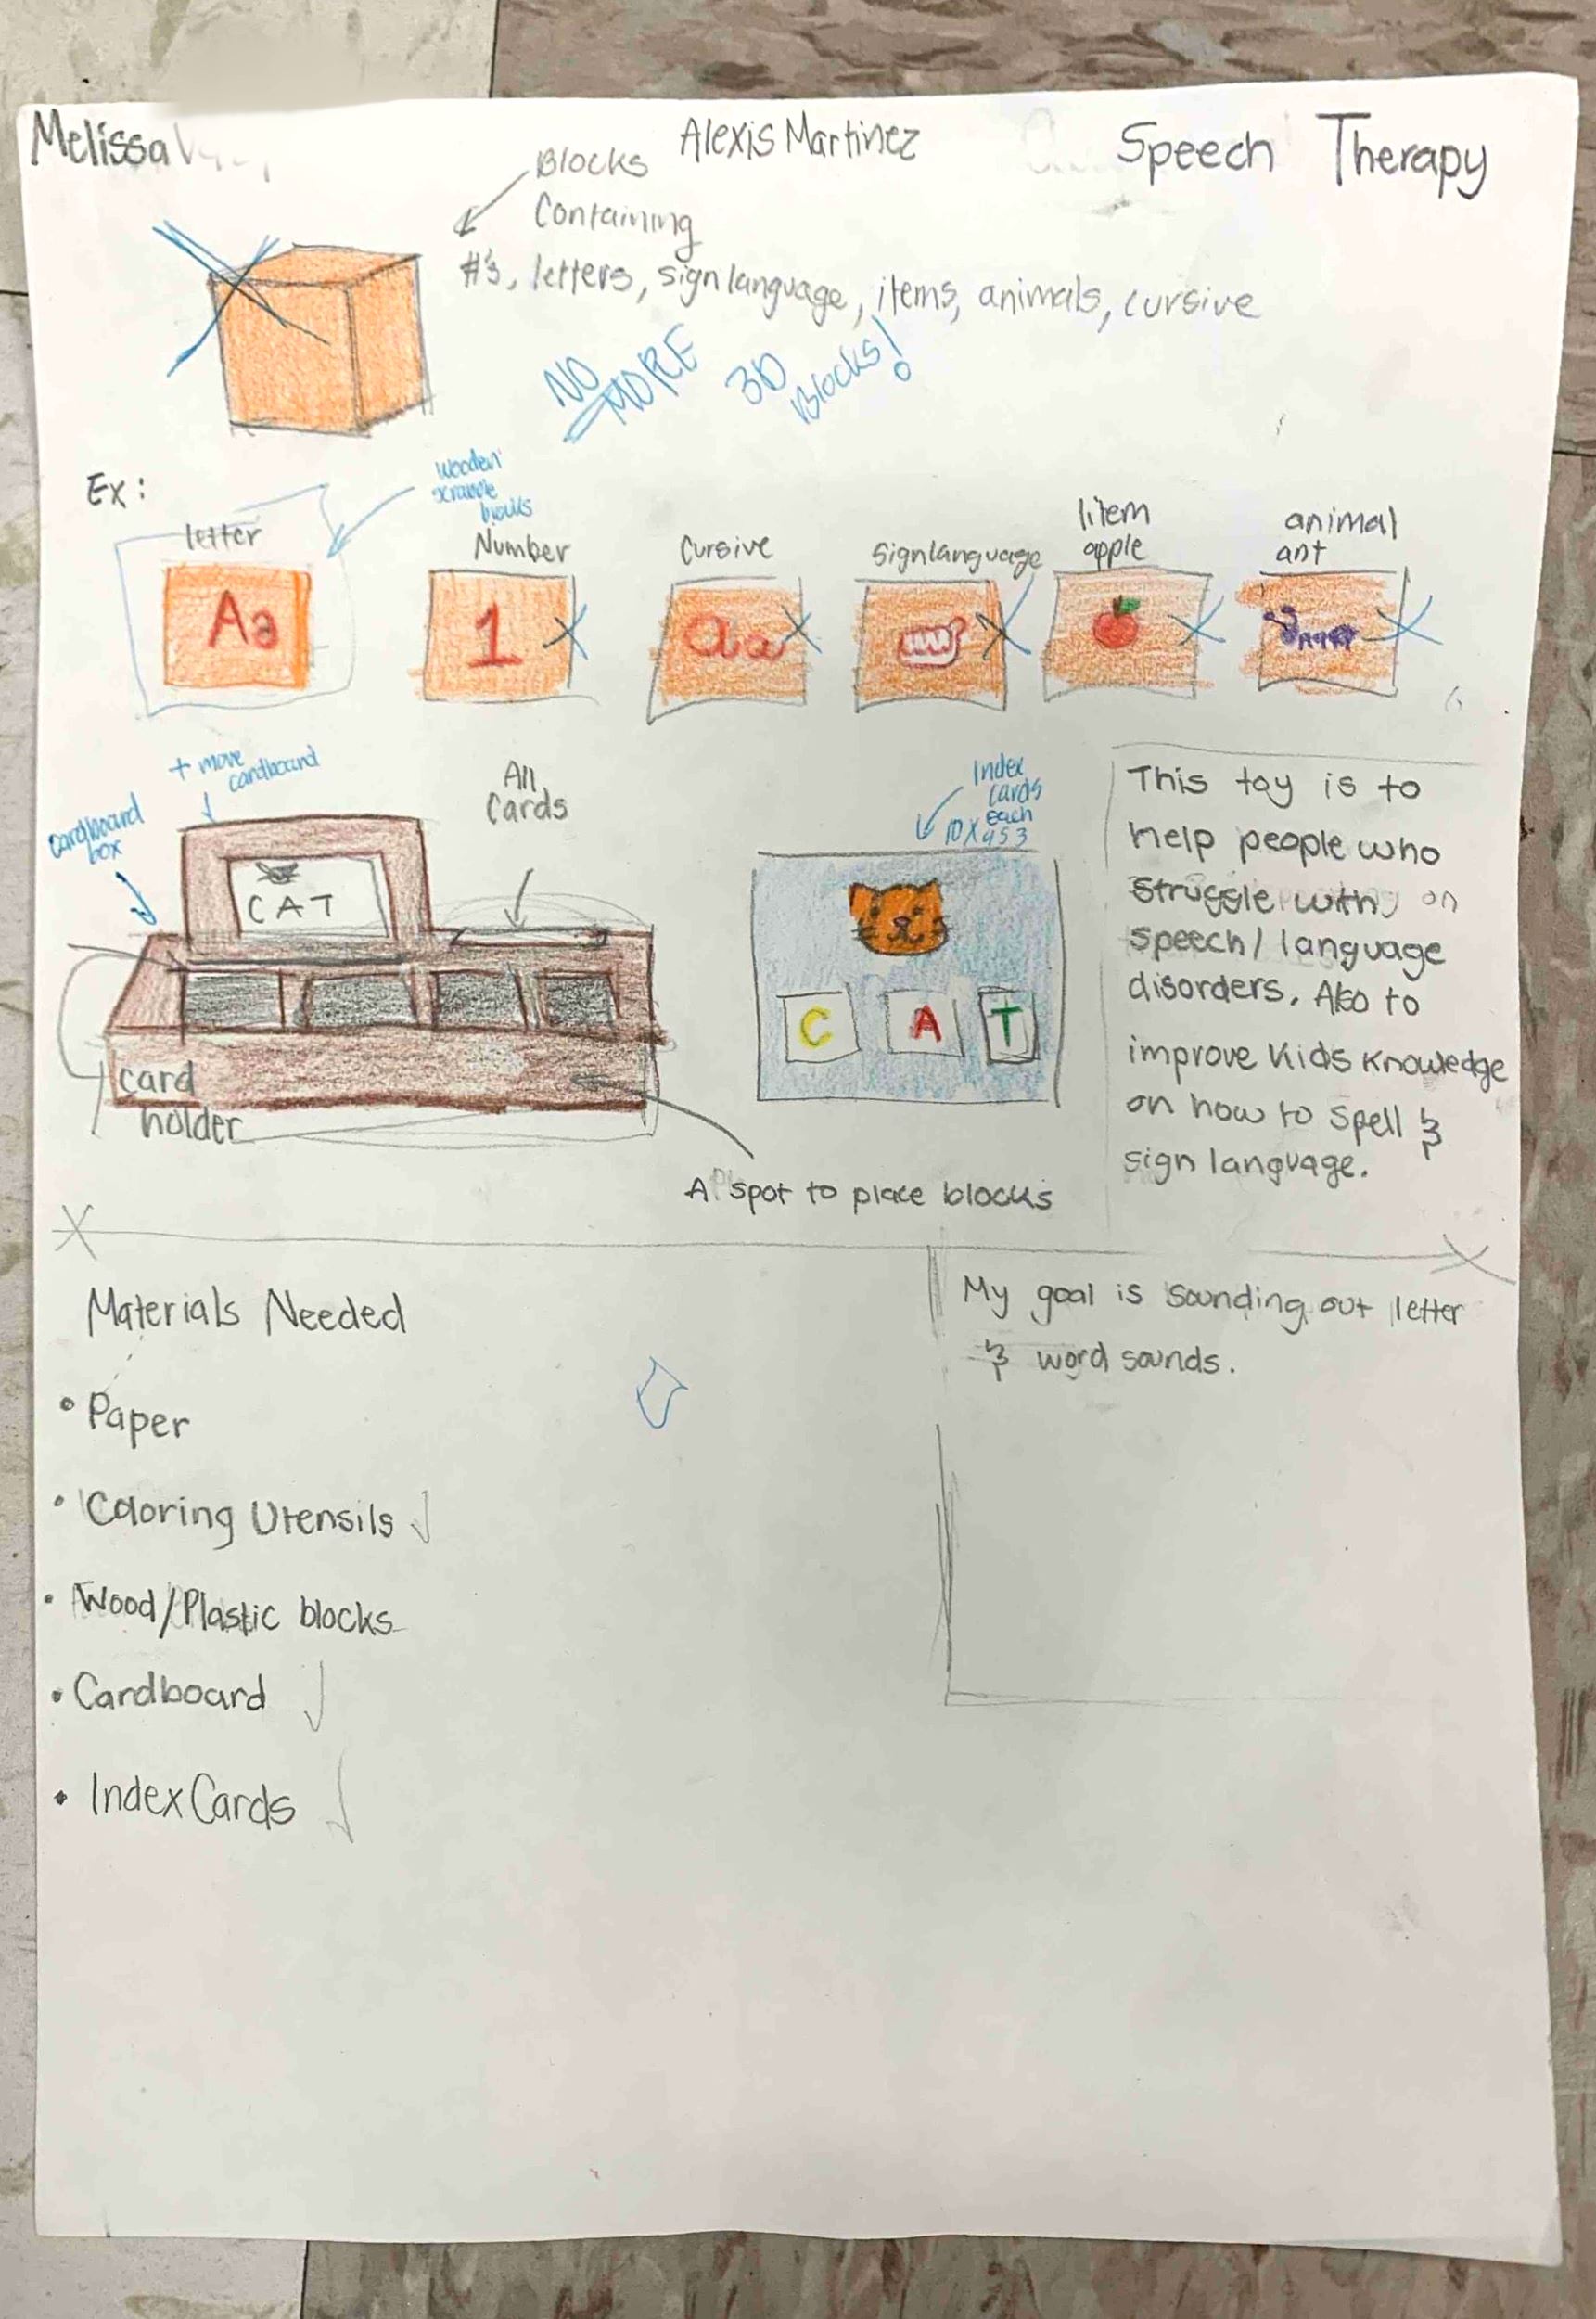 Melissa
Alexis Martinez
Speech Therapy
Blocks
Containing
#'s, letters, sign language, items, animals, cursive
NO MORE 3D Blocks!
Ex:
wooden
scrabble
blocks
letter
Number
Cursive
Sign language
item
apple
animal
ant
Aa
1
aa
+ more
cardboard
cardboard
box
All
Cards
Index
cards
each
CAT
C A T
card
holder
A spot to place blocks
This toy is to
help people who
struggle with on
speech/language
disorders. Also to
improve kids knowledge
on how to spell &
sign language.
Materials Needed
• Paper
• Coloring Utensils ✓
• Wood/Plastic blocks
• Cardboard ✓
• Index Cards ✓
My goal is sounding out letter
& word sounds.